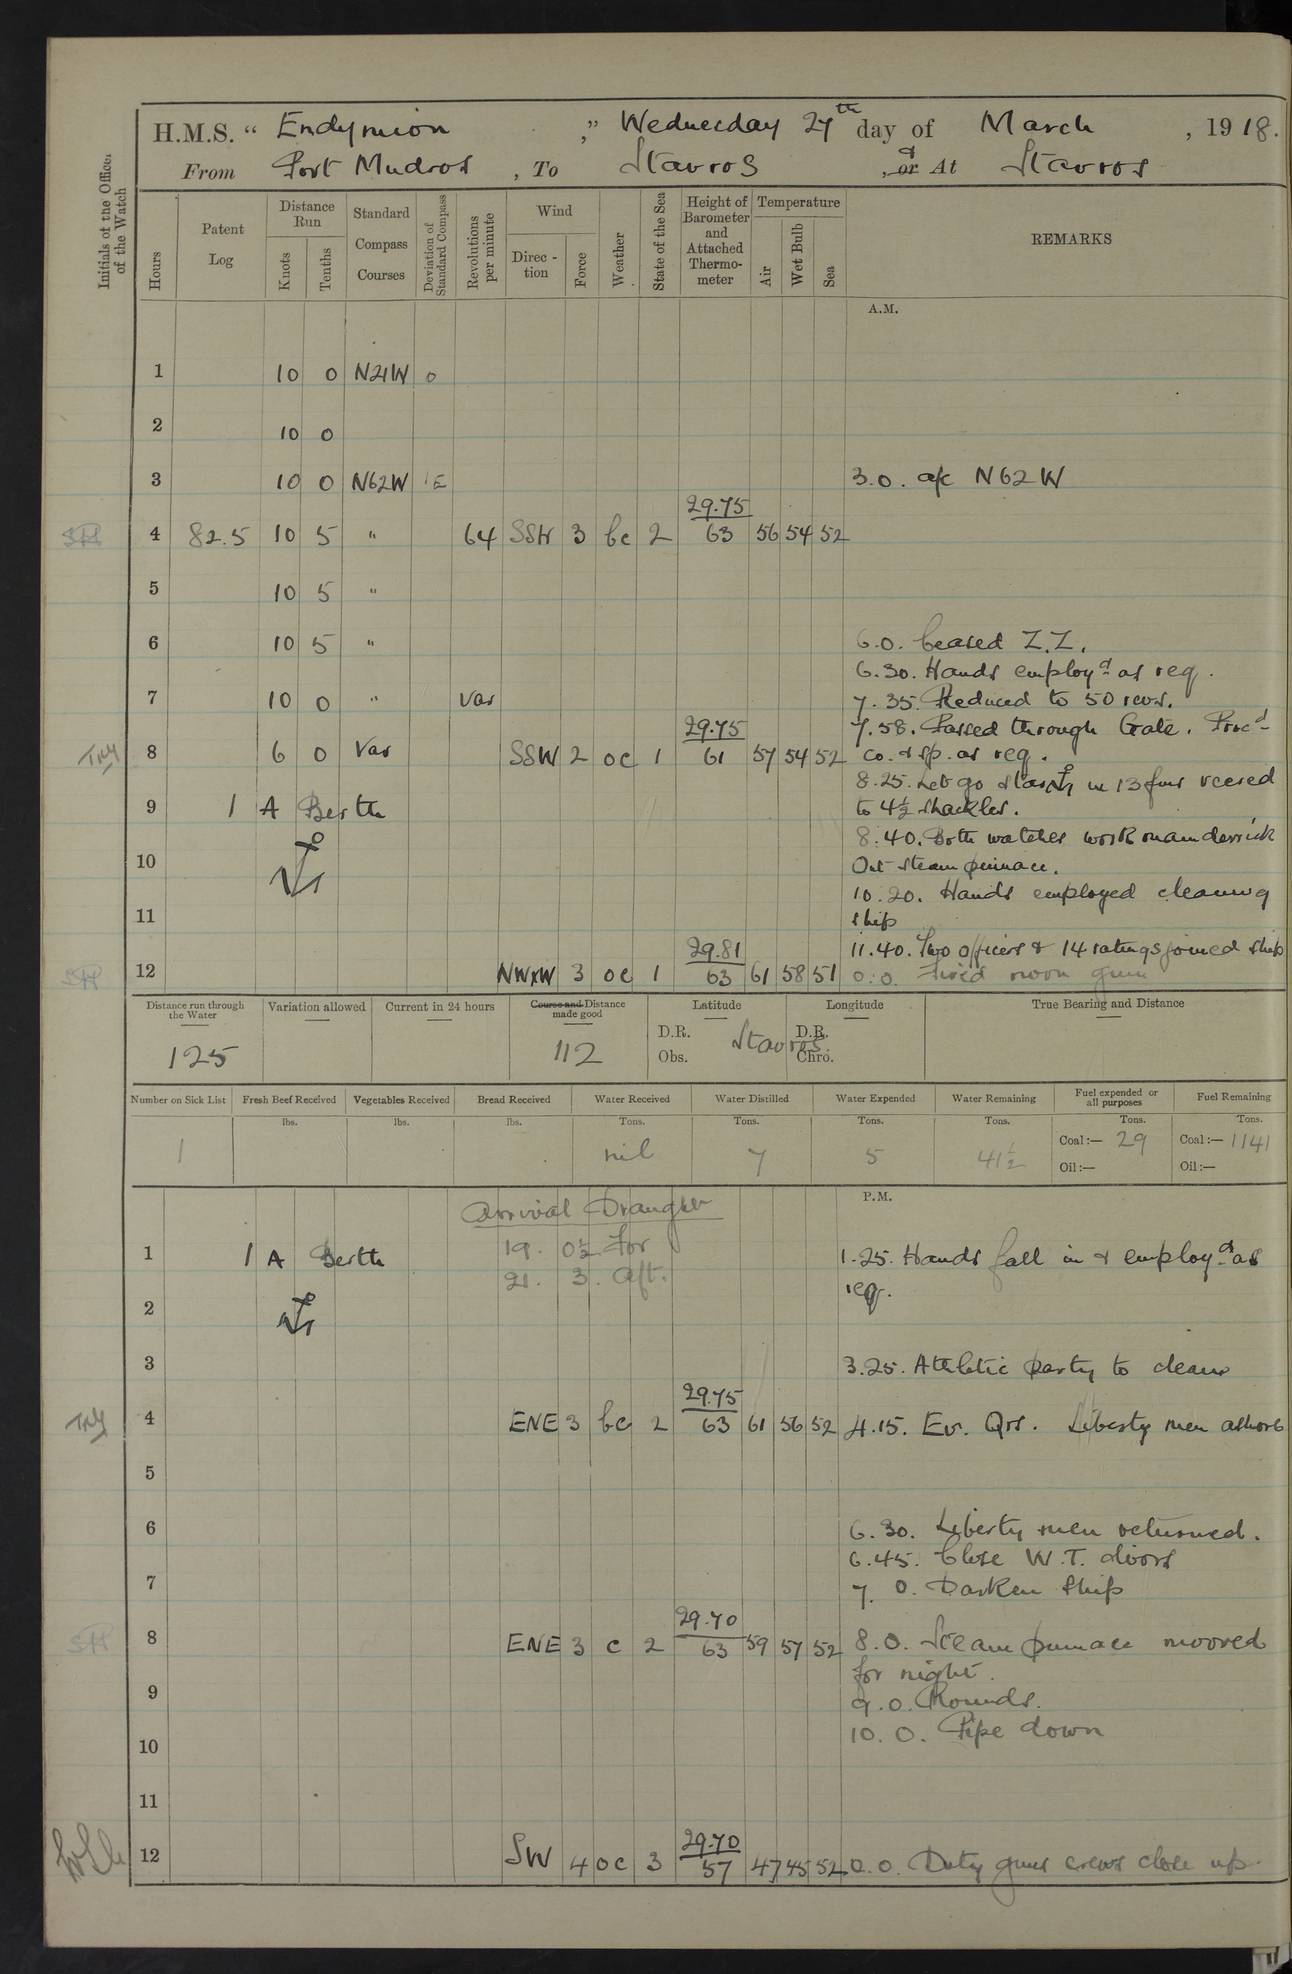 H.M.S. “ Endymion ,” Wednesday 27th day of March , 1918.
From Port Mudros , To Stavros , or & At Stavros
Initials of the Officer of the Watch
Hours
Patent Log
Distance Run
Knots
Tenths
Standard Compass Courses
Deviation of Standard Compass
Revolutions per minute
Wind
Direc-tion
Force
Weather
State of the Sea
Height of Barometer and Attached Thermo-meter
Temperature
Air
Wet Bulb
Sea
REMARKS
A.M.
1 10 0 N21W 0
2 10 0
3 10 0 N62W 1E 3.0. a/c N62W
29.75
4 82.5 10 5 " 64 SSW 3 bc 2 63 56 54 52
5 10 5 "
6 10 5 " 6.0. Ceased Z.Z.
6.30. Hands employd as req.
7 10 0 " Var 7.35. Reduced to 50 revs.
29.75 7.58. Passed through Gate. Procd
8 6 0 Var SSW 2 oc 1 61 57 54 52 co. & sp. as req.
8.25. Let go starbd ⚓ in 13 fms veered
9 1 A Berth to 4½ shackles.
8.40. Both watches work main derrick
10 ⚓ Out steam pinnace.
10.20. Hands employed cleaning
11 ship
29.81 11.40. Two officers & 14 ratings joined ship
12 NWxW 3 oc 1 63 61 58 51 0.0. Fired noon gun
Distance run through the Water
Variation allowed
Current in 24 hours
Course and Distance made good
Latitude
Longitude
True Bearing and Distance
125 112 D.R. Obs. Stavros D.R. Chro.
Number on Sick List
Fresh Beef Received
Vegetables Received
Bread Received
Water Received
Water Distilled
Water Expended
Water Remaining
Fuel expended or all purposes
Fuel Remaining
lbs. lbs. lbs. Tons. Tons. Tons. Tons. Tons. Tons.
1 nil 7 5 41½ Coal:— 29 Coal:— 1141
Oil:— Oil:—
Arrival Draught P.M.
19. 0½ For
1 1 A Berth 1.25. Hands fall in & employd as
21. 3. Aft. req.
2 ⚓
3 3.25. Athletic party to clean
29.75
4 ENE 3 bc 2 63 61 56 52 4.15. Ev. Qrs. Liberty men ashore
5
6 6.30. Liberty men returned.
6.45. Close W.T. doors
7 7. 0. Darken ship
29.70
8 ENE 3 c 2 63 59 57 52 8.0. Steam pinnace moored
for night.
9 9.0. Rounds.
10 10. 0. Pipe down
11
29.70
12 SW 4 oc 3 57 47 45 52 0.0. Duty guns crews close up.